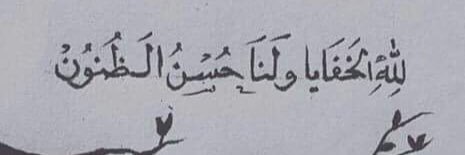 لِلّٰهِ الخَفَايا ولَنَا حُسْنُ الَظُنوُنْ